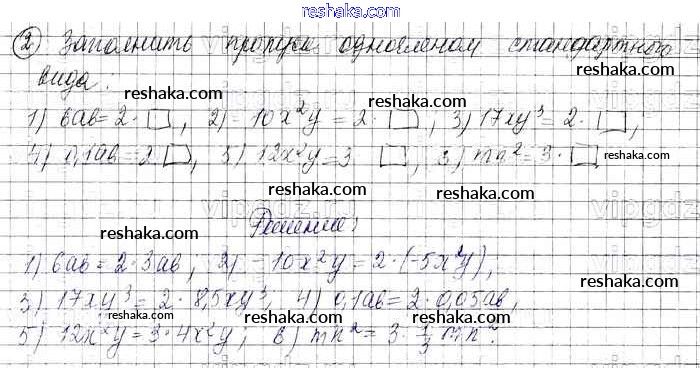 reshaka.com
② Заполнить пропуск одночленом стандартного
вида:
reshaka.com reshaka.com
1) 6ab = 2 · □, 2) -10x²y = 2 · □; 3) 17xy³ = 2 · □,
4) 0,1ab = 2 □, 5) 12x²y = 3 □, 3) mn² = 3 · □
reshaka.com reshaka.com reshaka.com
reshaka.com reshaka.com
Решение:
1) 6ab = 2 · 3ab; 2) -10x²y = 2 · (-5x²y),
reshaka.com reshaka.com
3) 17xy³ = 2 · 8,5xy³, 4) 0,1ab = 2 · 0,05ab,
reshaka.com reshaka.com
5) 12x²y = 3 · 4x²y; 6) mn² = 3 · 1/3 mn².
reshaka.com